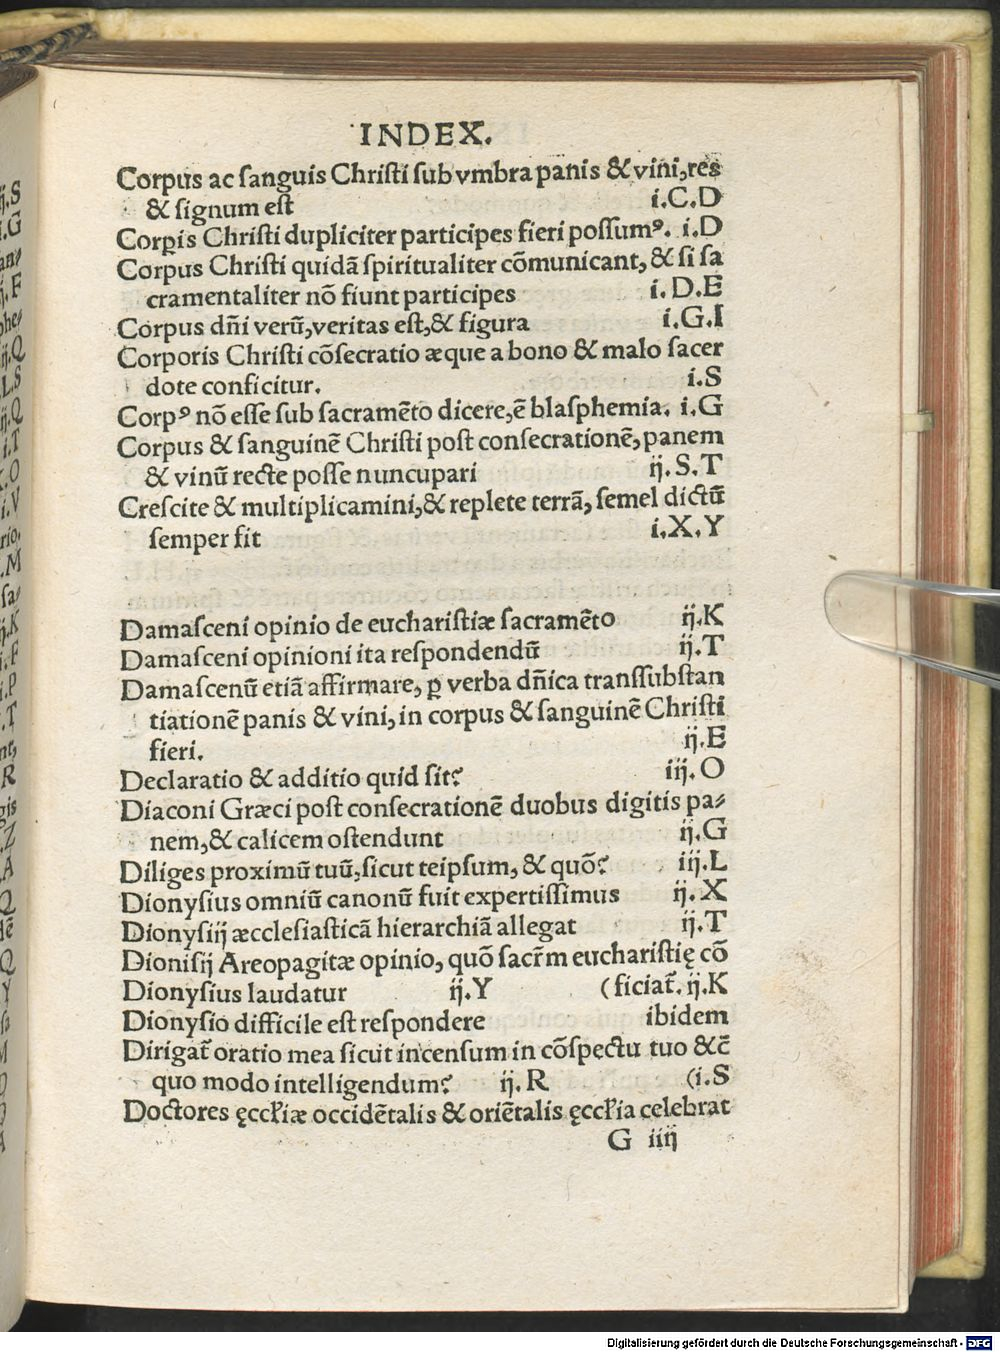 INDEX.
Corpus ac ſanguis Chriſti ſub vmbra panis & vini, res
& ſignum eſt i.C.D
Corꝑis Chriſti dupliciter participes fieri poſſumꝰ. i.D
Corpus Chriſti quidā ſpiritualiter cōmunicant, & ſi ſa
cramentaliter nō fiunt participes i.D.E
Corpus dn̄i verū, veritas eſt, & figura i.G.I
Corporis Chriſti cōſecratio æque a bono & malo ſacer
dote conficitur. i.S
Corpꝰ nō eſſe ſub ſacramēto dicere, ē blaſphemia. i.G
Corpus & ſanguinē Chriſti poſt conſecrationē, panem
& vinū recte poſſe nuncupari ij.S.T
Creſcite & multiplicamini, & replete terrā, ſemel dictū
ſemper fit i.X.Y
Damaſceni opinio de euchariſtiæ ſacramēto ij.K
Damaſceni opinioni ita reſpondendū ij.T
Damaſcenū etiā affirmare, ꝑ verba dn̄ica transſubſtan
tiationē panis & vini, in corpus & ſanguinē Chriſti
fieri. ij.E
Declaratio & additio quid ſit? iij.O
Diaconi Græci poſt conſecrationē duobus digitis pa⸗
nem, & calicem oſtendunt ij.G
Diliges proximū tuū, ſicut teipſum, & quō? iij.L
Dionyſius omniū canonū fuit expertiſſimus ij.X
Dionyſiij æccleſiaſticā hierarchiā allegat ij.T
Dioniſij Areopagitæ opinio, quō ſacr̄m euchariſtię cō
Dionyſius laudatur ij.Y (ficiat̄. ij.K
Dionyſio difficile eſt reſpondere ibidem
Dirigat̄ oratio mea ſicut incenſum in cōſpectu tuo &c̄
quo modo intelligendum? ij.R (i.S
Doctores ęccłiæ occidētalis & oriētalis ęccłia celebrat
G iiij
ij.S
i.G
an⸗
j.F
phe⸗
ij.Q
L.S
ij.Q
i.T
.O
i.V
rio.
.M
ſa⸗
ij.K
i.F
i.P
.T
nt,
R
gis
.Z
.A
Q
dē
Q
Y
ſa
Digitalisierung gefördert durch die Deutsche Forschungsgemeinschaft - DFG